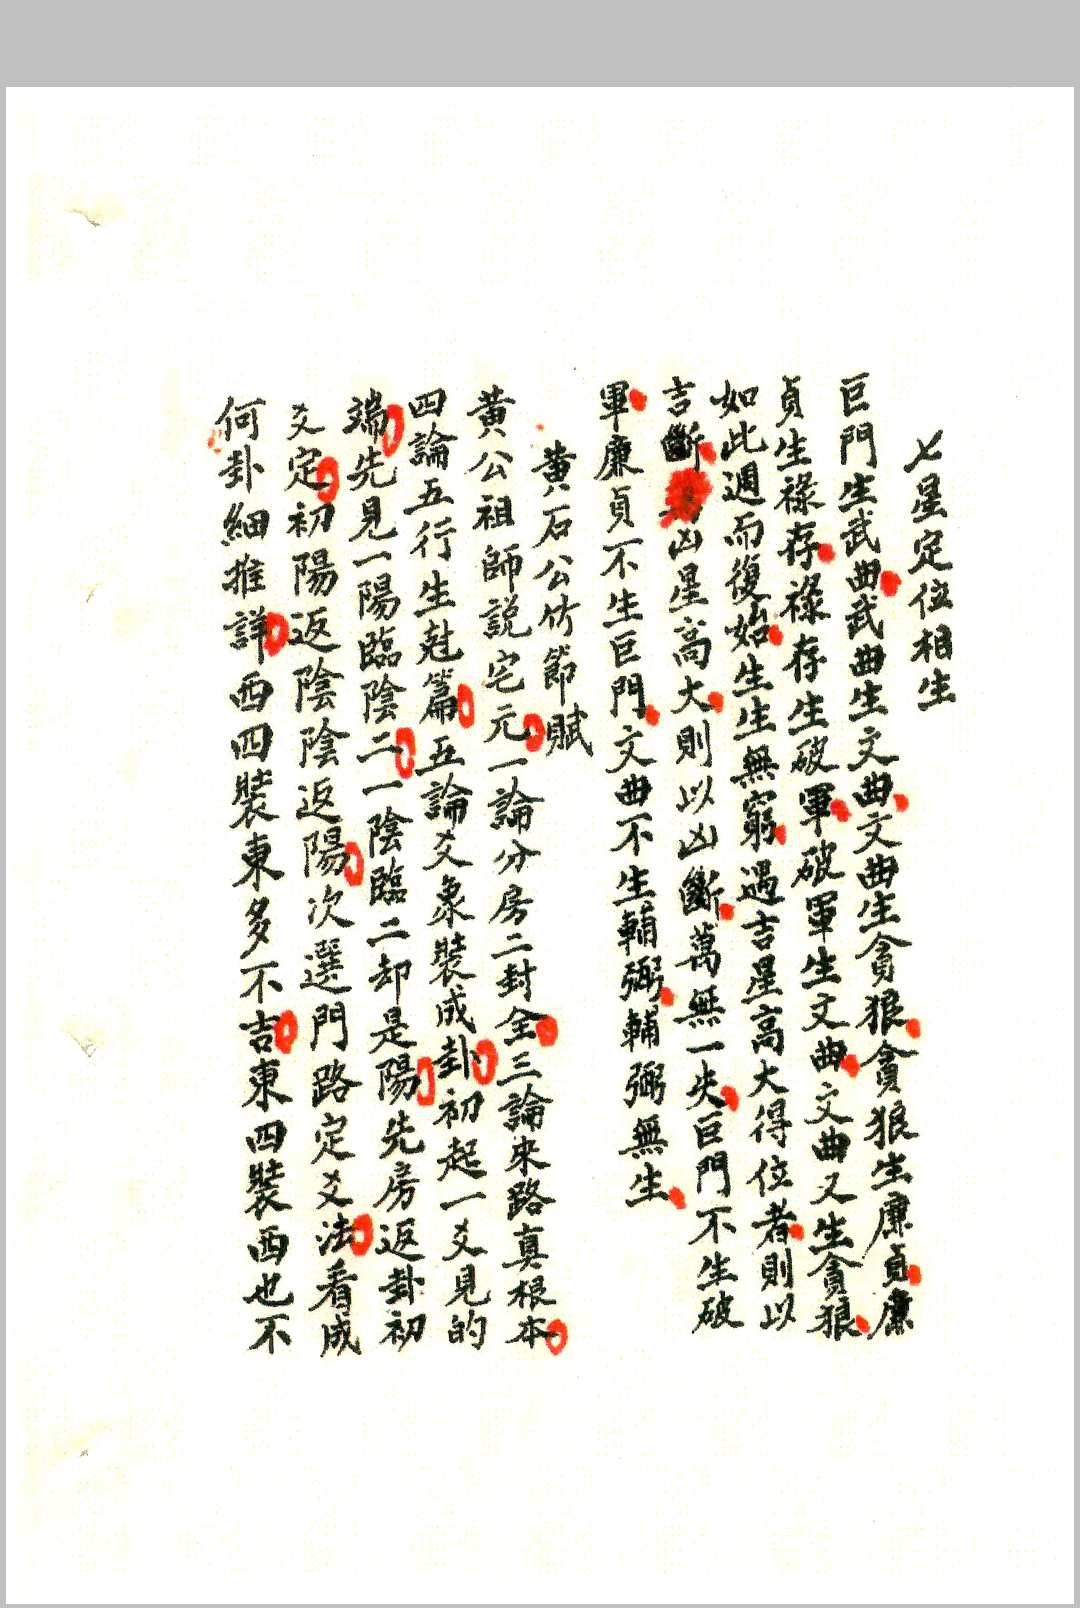 七星定位相生
巨門生武曲武曲生文曲文曲生貪狼貪狼生廉貞廉
貞生祿存祿存生破軍破軍生文曲文曲又生貪狼
如此週而復始生生無窮遇吉星高大得位者則以
吉斷凶星高大則以凶斷萬無一失巨門不生破
軍廉貞不生巨門文曲不生輔弼輔弼無生
黃石公竹節賦
黃公祖師説宅元一論分房二封全三論來路真根本
四論五行生尅篇五論爻象裝成卦初起一爻見的
端先見一陽臨陰二一陰臨二却是陽先房返卦初
爻定初陽返陰陰返陽次選門路定爻法看成
何卦細推詳西四裝東多不吉東四裝西也不